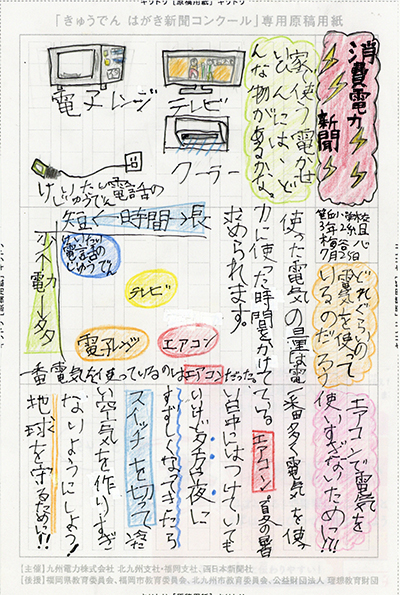 キリトリ【原稿用紙】キリトリ
「きゅうでん はがき新聞コンクール」専用原稿用紙
消費電力
新聞
家で使う電かせ
いひんには、ど
んな物があるかな。
テレビ
クーラー
電子レンジ
けいたい電話の
じゅうでん
3年
7月25日
どれぐらいの
電気を使って
いるのだろう
使った電気の量は電
力に使った時間をかけて
求められます。
短←時間→長
少←電力→多
けいたい
電話の
じゅうでん
テレビ
電子レンジ
エアコン
一番電気を使っているのはエアコンだった。
エアコンで電気を
使いすぎないために!!
一番多く電気を使っ
てる、エアコン。夏の暑
い日中にはつけていても
いいけど夕方や夜に
すずしくなってきたら
スイッチを切って冷
い空気を作りすぎ
ないようにしよう!
地球を守るため!!
【主催】九州電力株式会社 北九州支社・福岡支社、西日本新聞社
【後援】福岡県教育委員会、福岡市教育委員会、北九州市教育委員会、公益財団法人 理想教育財団
キリトリ【原稿用紙】キリトリ